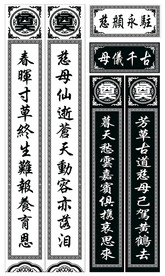 慈顏永駐
母儀千古
奠
奠
奠
奠
芳草古道慈母已駕黃鶴去
暮天愁雲嘉賓俱攜哀思來
慈母仙逝蒼天動容亦落泪
春暉寸草終生難報養育恩